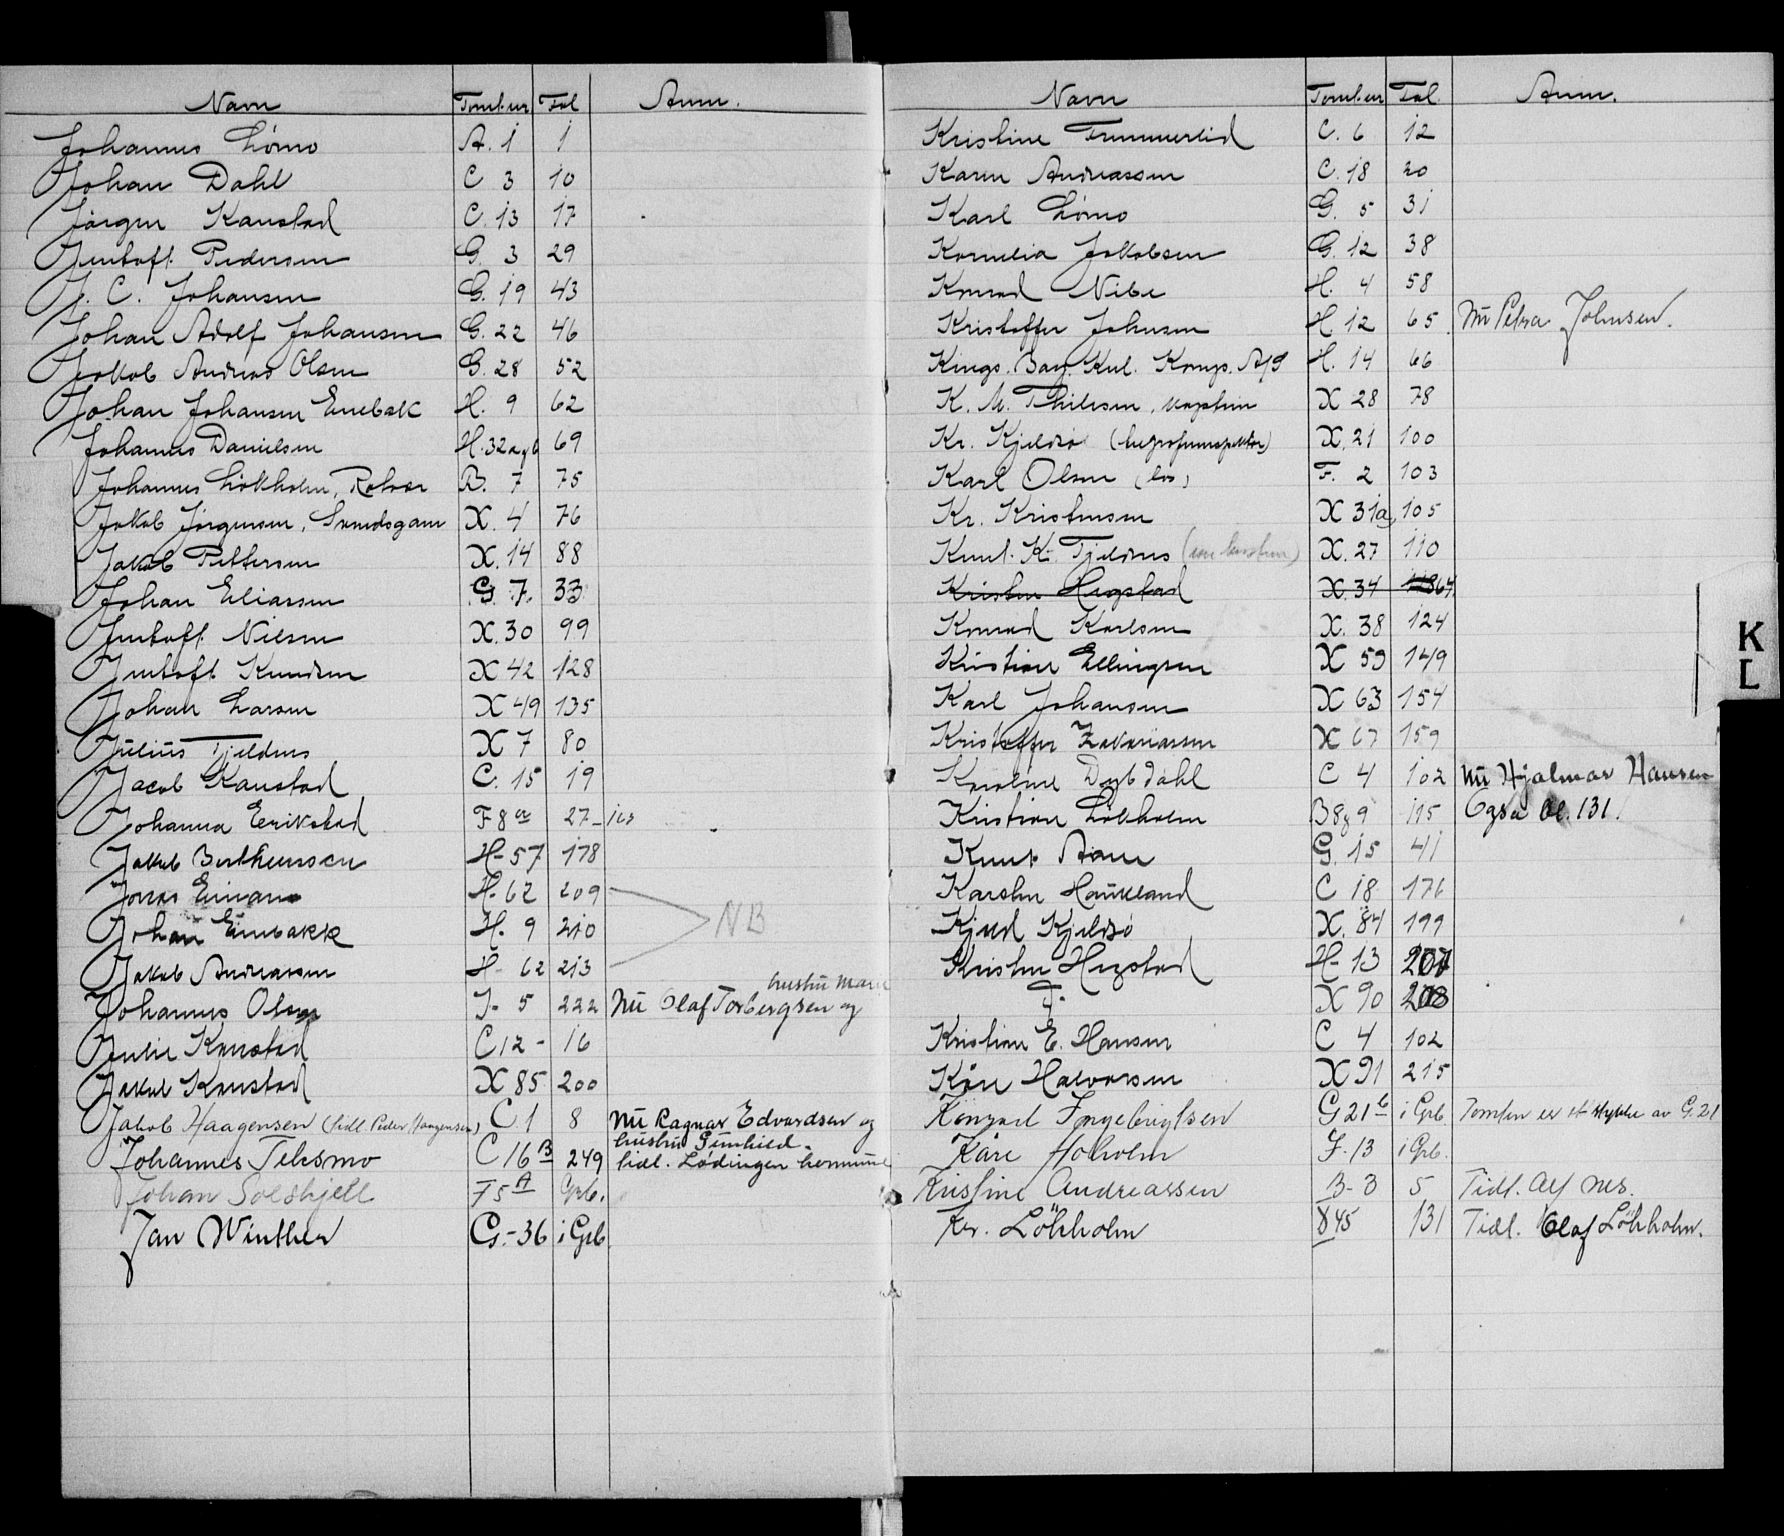 Navn Tomt.nr Fol Anm.
Johannes Lømo A. 1 1
Johan Dahl C 3 10
Jørgen Kanstad C. 13 17
Jentoft Pedersen G. 3 29
J. C. Johansen G. 19 43
Johan Adolf Johansen G. 22 46
Jakob Andreas Olsen G. 28 52
Johan Johansen Enebak H. 9 62
Johannes Danielsen H. 32 a g b 69
Johannes Lökholm, Rotvær B. 7 75
Jakob Jørgensen, X. 4 76
Jakob Pettersen X. 14 88
Johan Eliassen G. 7. 33
Jentoft Nilsen X. 30 99
Jentoft Knudsen X 42 128
Johan Larsen X 49 135
Julius Tjeldnes X 7 80
Jacob Kanstad C. 15 19
Johanna Erikstad F 8 a 27 - 163
Jakob Bertheussen H- 57 178
Jonas Einan H. 62 209
Johan Einebakk H. 9 210
NB
Jakob Andreassen H- 62 213
Johannes Olsen J- 5 222 Nu Olaf Torbergsen og hustru Marie
Julie Kanstad C 12 - 16
Jakob Kanstad X 85 200
Jakob Haagensen (tidl. Peder Haagensen) C 1 8 Nu Ragnar Edvardsen og
hustru Gunhild.
Johannes Teksmo C 16 B 249 tidl. Lødingen kommune
Johan Solskjell F 5 A Grb.
Jan Winther G.-36 i Grb.
Navn Tomt.nr Fol. Anm.
Kristine Trummerlid C. 6 12
Karen Andreassen C. 18 20
Karl Lømo G. 5 31
Kornelia Jakobsen G. 12 38
Konrad Nibe H. 4 58
Kristoffer Johnsen H. 12 65 Nu Petra Johnsen.
Kings Bay Kul. Komp. A/S H. 14 66
K. M. Thilesen, kaptein X 28 78
Kr. Kjeldsø X. 21 100
Karl Olsen (los) F. 2 103
Kr. Kristensen X 31a 105
Knut K. Tjeldnes X. 27 110
Kristen Hegstad X. 34
Konrad Karlsen X. 38 124
Kristian Ellingsen X 59 149
Karl Johansen X 63 154
Kristoffer Zakariassen X 67 159
Karoline Dybdahl C 4 102 Nu Hjalmar Hansen
Kristian Lökholm B 8 g 9 115 Også bl. 131.
Knut Aane G. 15 41
Karsten Haukland C 18 176
Kjeld Kjeldsø X. 84 199
Kristen Hegstad H- 13 207
X 90 208
Kristian E. Hansen C 4 102
Kåre Halvorsen X 91 215
Konrad Ingebrigtsen G 21 b i Grb. Tomten er et stykke av G. 21
Kåre Hoholm J. 13 i Grb.
Kristine Andreassen B- 3 5 Tidl. Alf Nes.
Kr. Lökholm 845 131 Tidl. Olaf Lökholm.
K
L